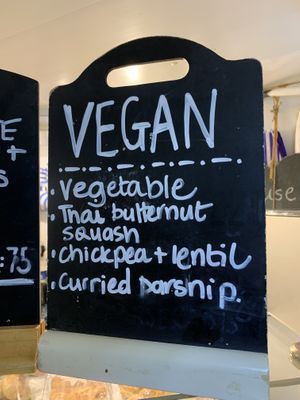 VEGAN
• vegetable
• Thai butternut
squash
• chickpea + lentil
• Curried parship.
+
s
:75
use